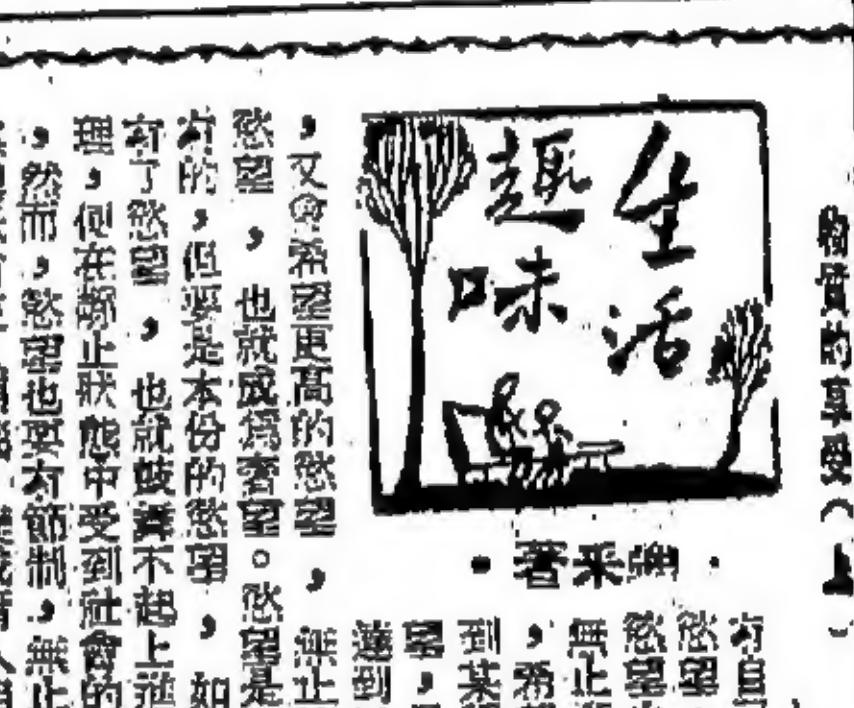 物質的享受（上）
生活
趣味
有自
慾望
慾望
無止
，希
到某
望，
達到
，又會希望更高的慾望，無止
慾望，也就成爲奢望。慾望是
有的，但要是本份的慾望，如
有了慾望，也就鼓舞不起上進
理，便在靜止狀態中受到社會的
，然而，慾望也要有節制，無止